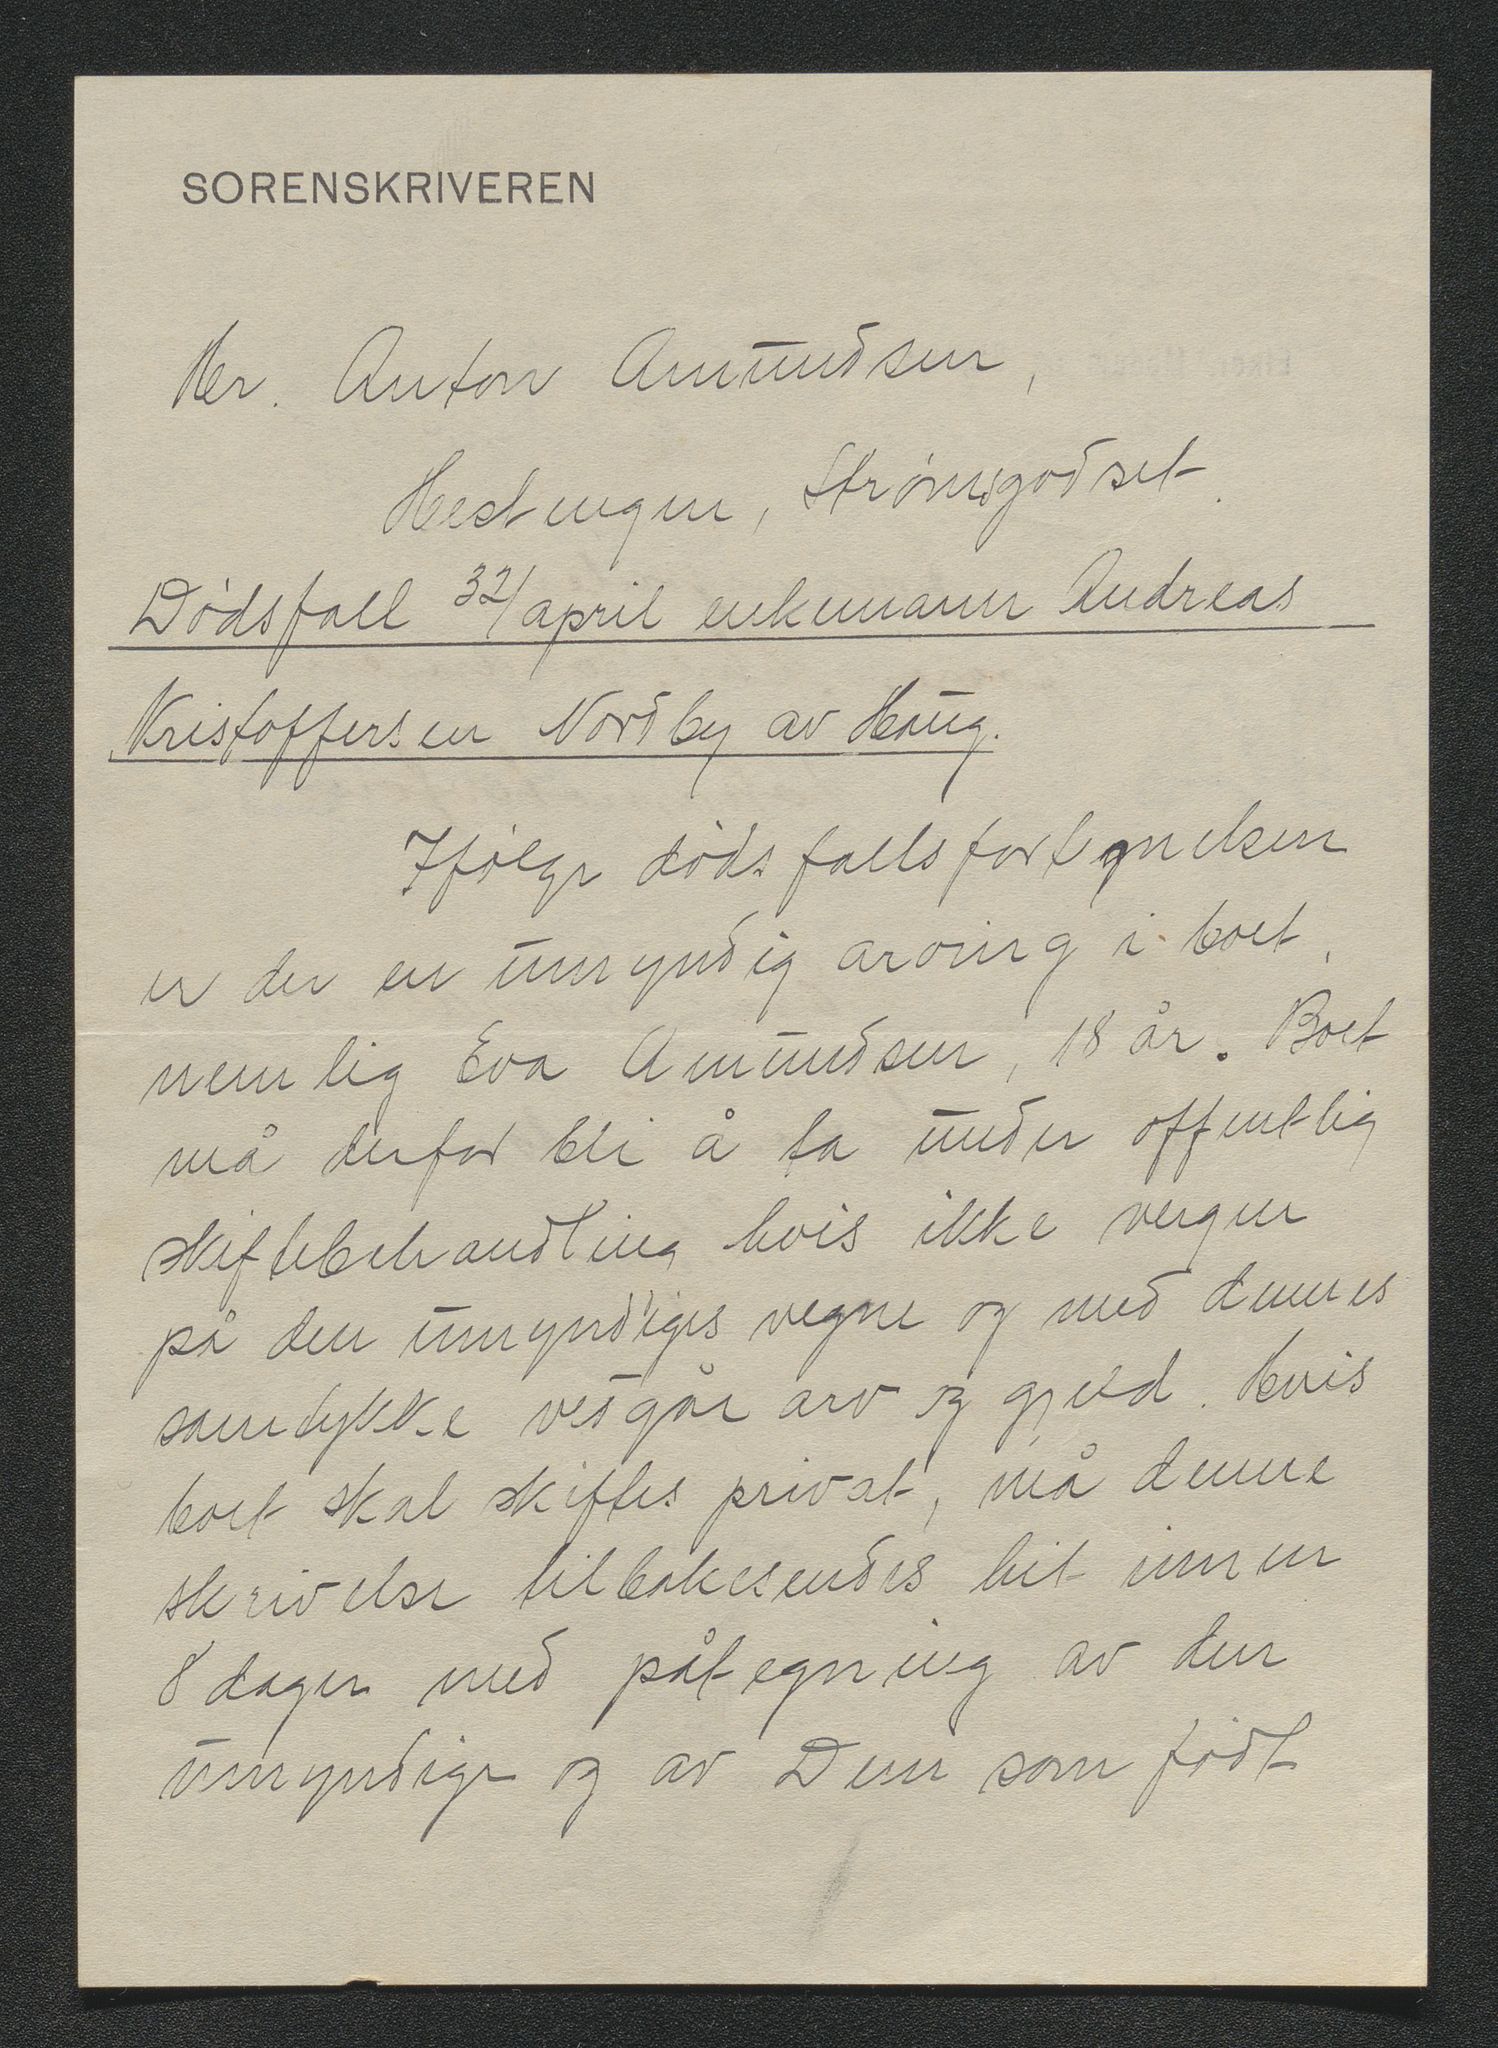 SORENSKRIVEREN
Hr. Anton Amundsen,
Hestengen, Strømsgodset.
Dødsfall 32/april enkemann Andreas
Kristoffersen Nordby av Haug.
Ifølge dødsfallsfortegnelsen
er der en umyndig arving i boet,
nemlig Eva Amundsen, 18 år. Boet
må derfor bli å ta under offentlig
skiftebehandling hvis ikke vergen
på den umyndiges vegne og med dennes
samtykke vedgår arv og gjeld. Hvis
boet skal skiftes privat, må denne
skrivelse tilbakesendes hit innen
8 dager med påtegning av den
umyndige og av Dem som født